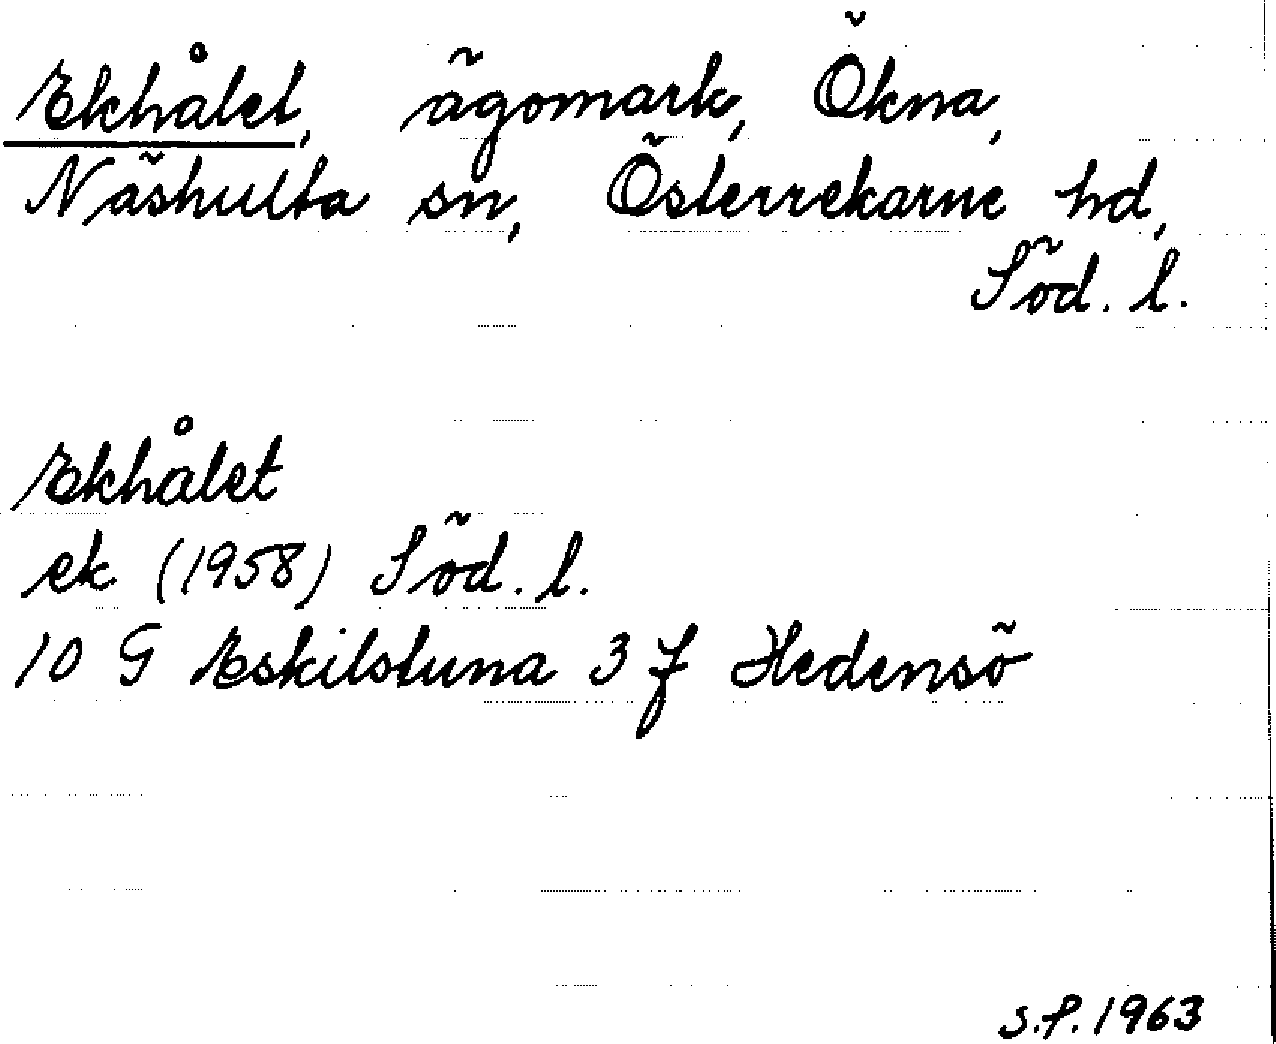 Ekhålet, ägomark, Ökna,
Näshulta sn, Österrekarne hd,
Söd. l.
Ekhålet
ek (1958) Söd. l.
10 G Eskilstuna 3 f Hedensö
S.P. 1963